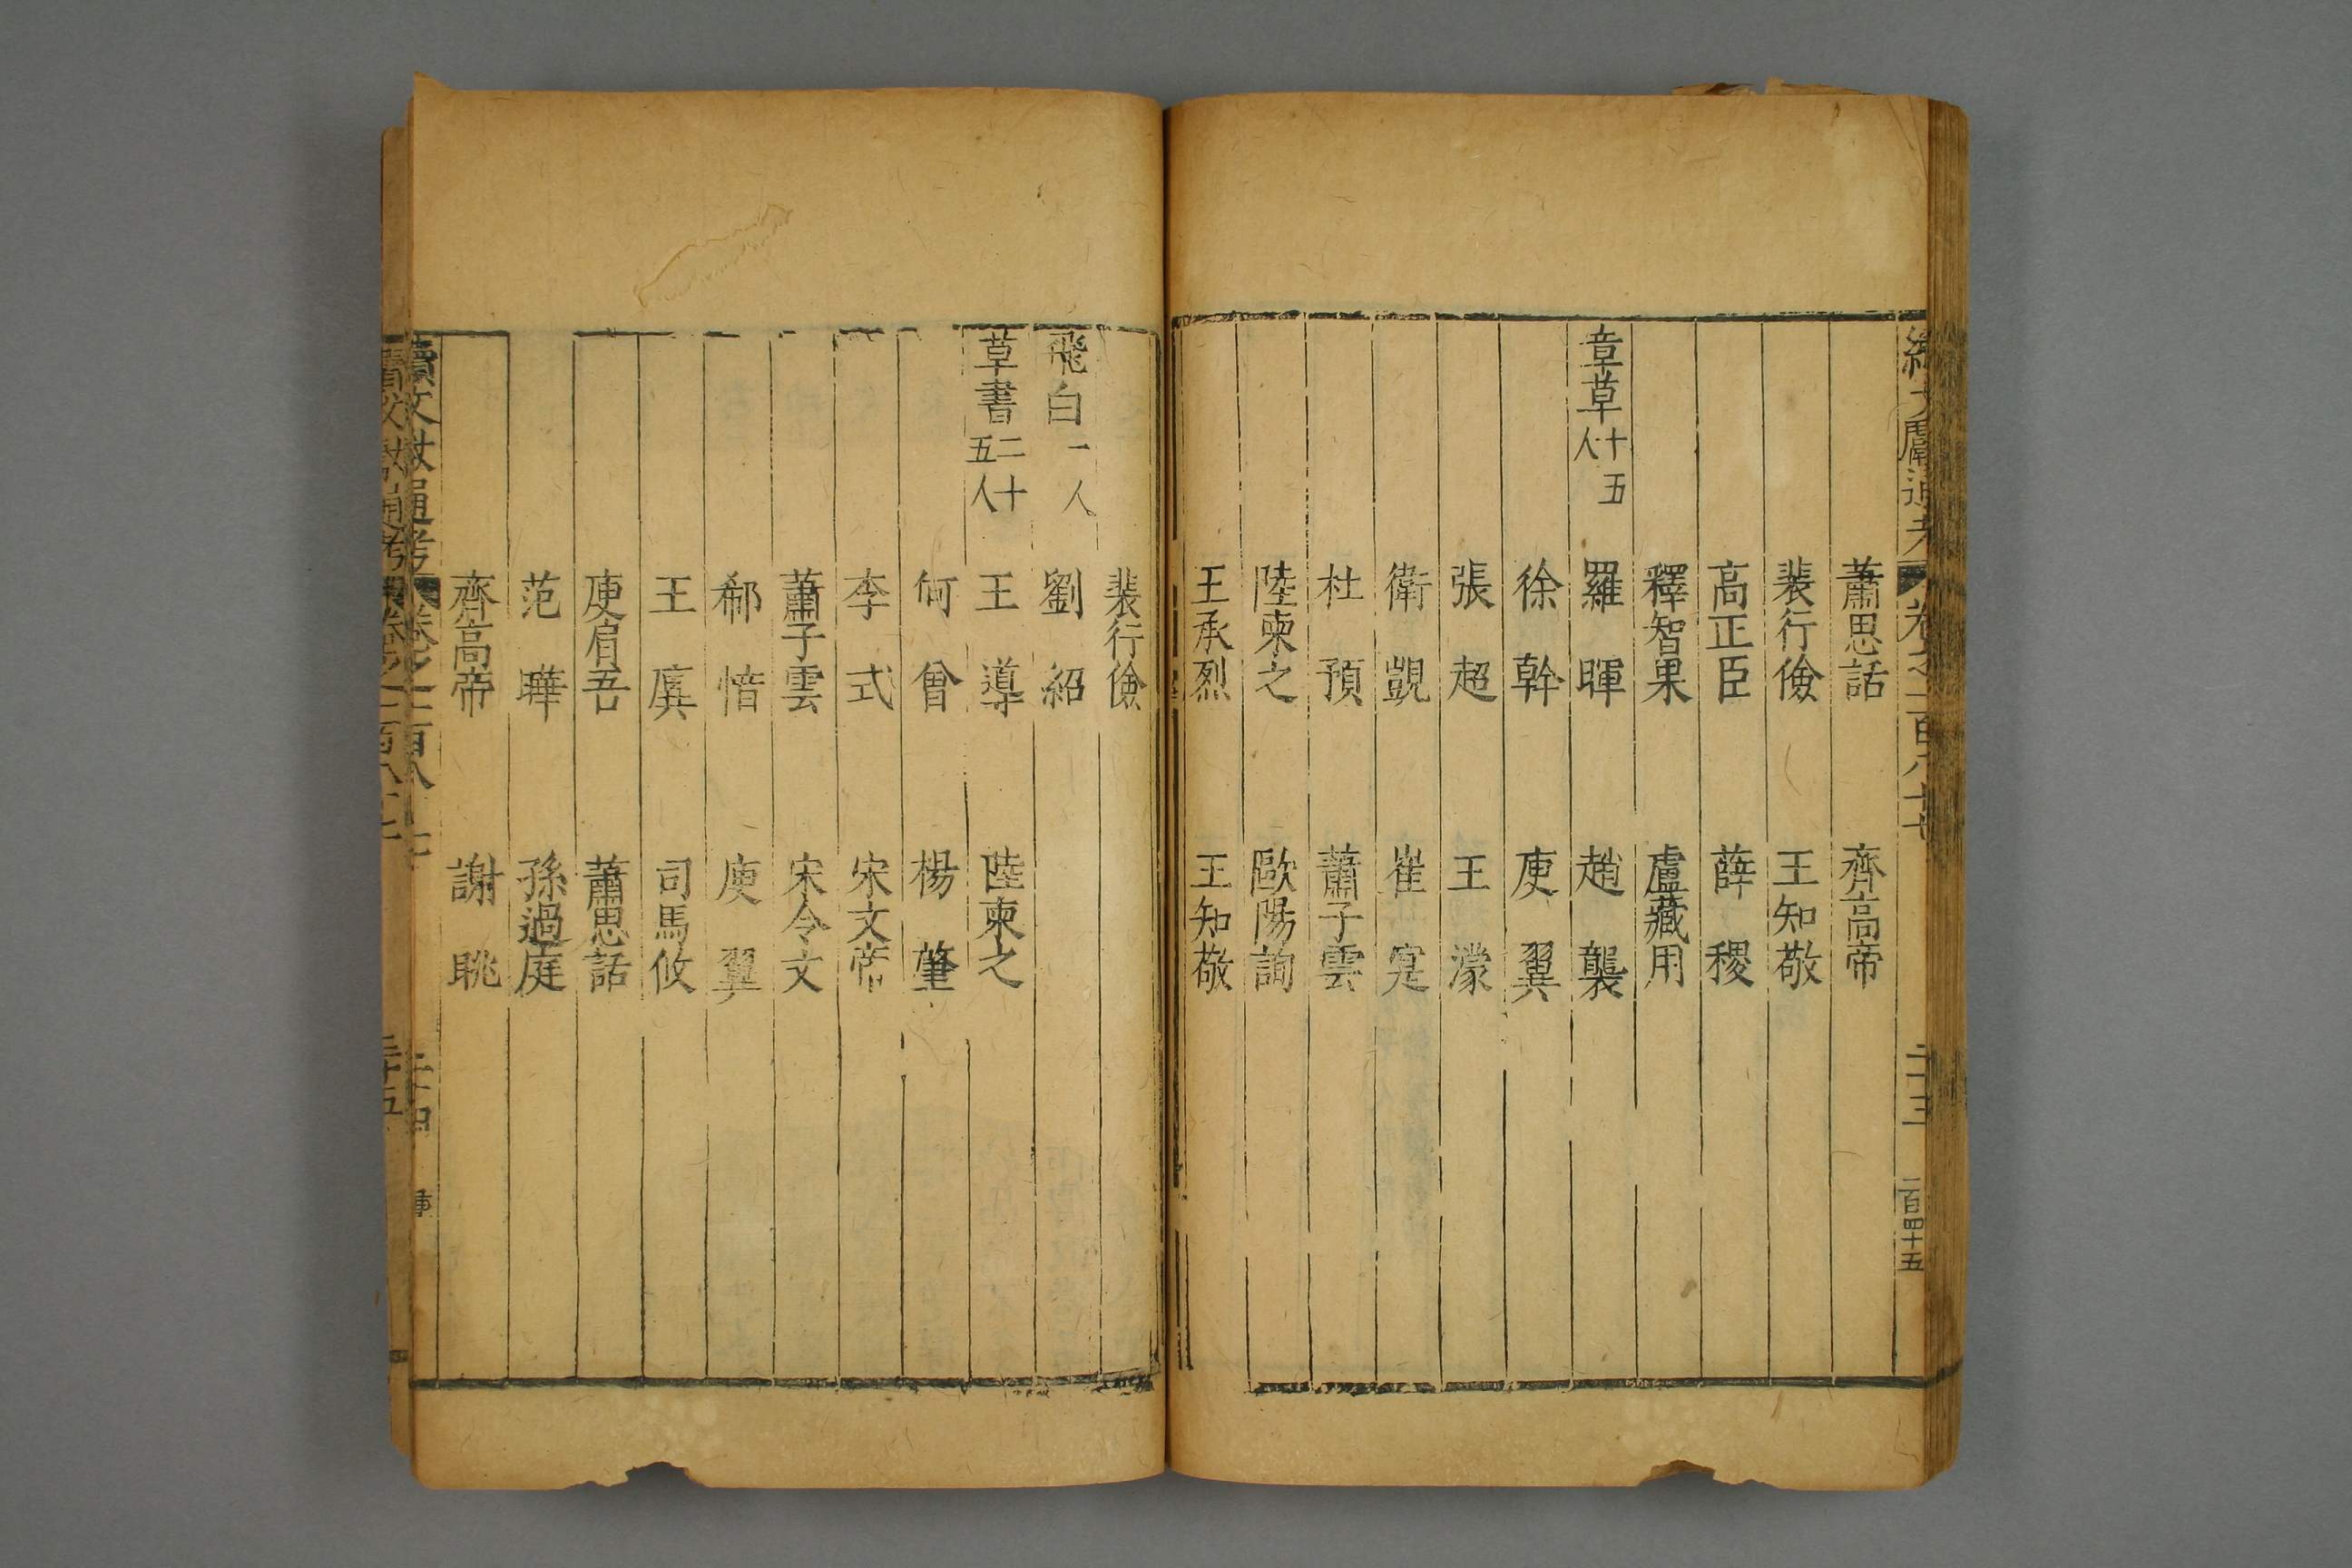 續文獻通考 卷之一百八十七 二十三 二百四十五
蕭思話 齊高帝
裴行儉 王知敬
高正臣 薛稷
釋智果 盧藏用
章草十五人 羅暉 趙襲
徐幹 庾翼
張超 王濛
衛覬 崔寔
杜預 蕭子雲
陸柬之 歐陽詢
王承烈 王知敬
裴行儉
飛白一人 劉紹
草書二十五人 王導 陸柬之
何曾 楊肇
李式 宋文帝
蕭子雲 宋令文
郗愔 庾翼
王廙 司馬攸
庾肩吾 蕭思話
范曄 孫過庭
齊高帝 謝眺
續文獻通考 卷之一百八十七 二十四
續文獻通考 卷之一百八十七 二十五